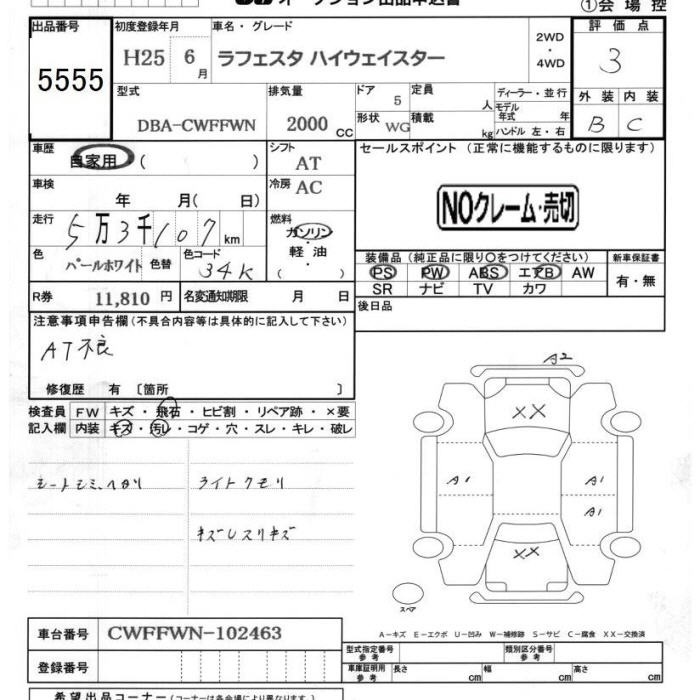 ①会場控
出品番号 初度登録年月 車名・グレード 2WD ・ 4WD 評価点
5555 H25 6月 ラフェスタ ハイウェイスター 3
型式 排気量 ドア 5 定員 人 ディーラー・並行 外装 内装
DBA-CWFFWN 2000 CC 形状 WG 積載 kg モデル年式 年 ハンドル 左・右 B C
車歴 自家用 ( ) シフト AT セールスポイント (正常に機能するものに限ります)
車検 年 月( 日) 冷房 AC
NOクレーム・売切
走行 5万3千107km 燃料 ガソリン・軽油・( )
色 パールホワイト 色替 色コード 34K
装備品 (純正品に限り○をつけてください) 新車保証書
PS PW ABS エアB AW 有・無
SR ナビ TV カワ
R券 11,810円 名変通知期限 月 日 後日品
注意事項申告欄 (不具合内容等は具体的に記入して下さい)
AT不良
修復歴 有 〔箇所 〕
検査員 FW キズ・飛石・ヒビ割・リペア跡・×要
記入欄 内装 キズ・汚レ・コゲ・穴・スレ・キレ・破レ
シートシミ、ヘタリ ライトクモリ
キズUスリキズ
A2
XX
A1 A1
A1
XX
スペア
A-キズ E-エクボ U-凹み W-補修跡 S-サビ C-腐食 XX-交換済
車台番号 CWFFWN-102463
登録番号
型式指定番号 参考 類別区分番号 参考
車庫証明用 参考 長さ cm 幅 cm 高さ cm
希望出品コーナー (コーナーは各会場により異なります)